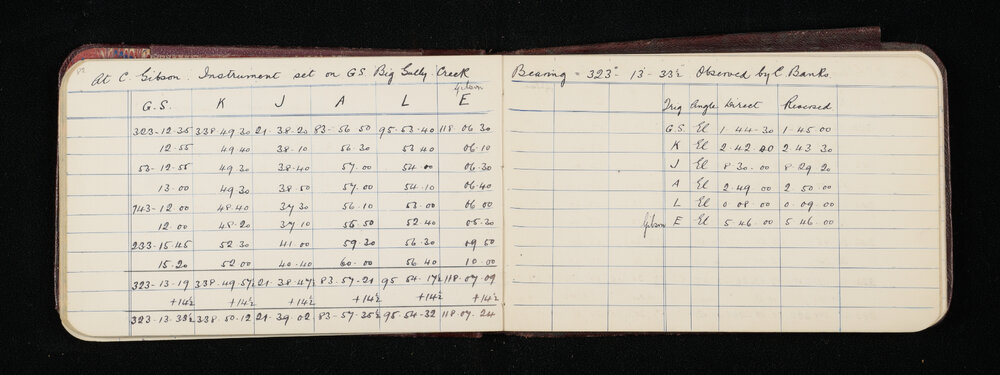 At C Gibson. Instrument set on GS Big Gully Creek
Gibson
G.S. K J A L E
323-12-35 338.49.30 21.38.20 83-56 50 95-53.40 118 06 30
12.55 49.40 38.10 56.30 53 40 06.10
53-12-55 49.30 38.40 57.00 54 00 06.30
13.00 49.30 38.50 57.00 54.10 06.40
143-12.00 48.40 37.30 56.10 53.00 06 00
12.00 48.20 37.10 55.50 52.40 05.30
233-15-45 52 30 41.00 59.30 56.30 09 50
15.20 52 00 40.40 60.00 56 40 10.00
323-13-19 338.49-57½ 21.38.47½ 83.57-21 95 54-17½ 118-07-09
+14½ +14½ +14½ +14½ +14½ +14½
323-13-33½ 338-50-12 21-39.02 83-57-35½ 95-54-32 118.07.24
Bearing = 323° 13' 33½ Observed by C Banks
Trig Angle Direct Reversed
G.S. El 1.44.30 1-45.00
K El 2.42.40 2 43 30
J El 8-30.00 8-29 20
A El 2.49 00 2 50 00
L El 0.08.00 0.09.00
Gibson E El 5.46.00 5 46.00